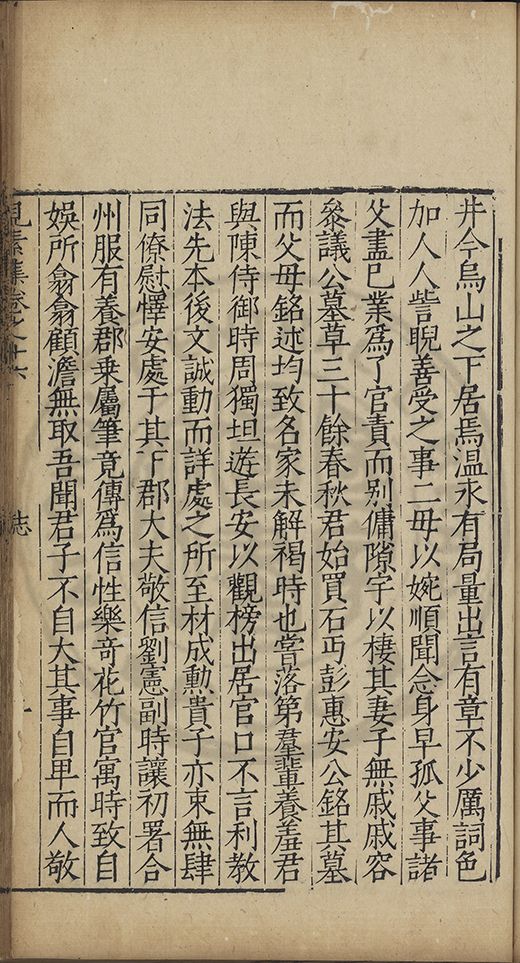 井今烏山之下居焉溫永有局量出言有章不少厲詞色
加人人訾睨善受之事二毋以婉順聞念身早孤父事諸
父盡已業爲了官責而别傭隙宇以棲其妻子無戚戚容
叅議公墓草三十餘春秋君始買石丐彭惠安公銘其墓
而父母銘述均致名家未解褐時也嘗落第羣輩養羞君
與陳侍御時周獨坦遊長安以觀榜出居官口不言利教
法先本後文誠動而詳處之所至材成勲貴子亦束無肆
同僚慰懌安處于其下郡大夫敬信劉憲副時讓初署合
州服有養郡乗屬筆竟傳爲信性樂竒花竹官寓時致自
娛所翕翕顧澹無取吾聞君子不自大其事自卑而人敬
見素集卷之十六 志